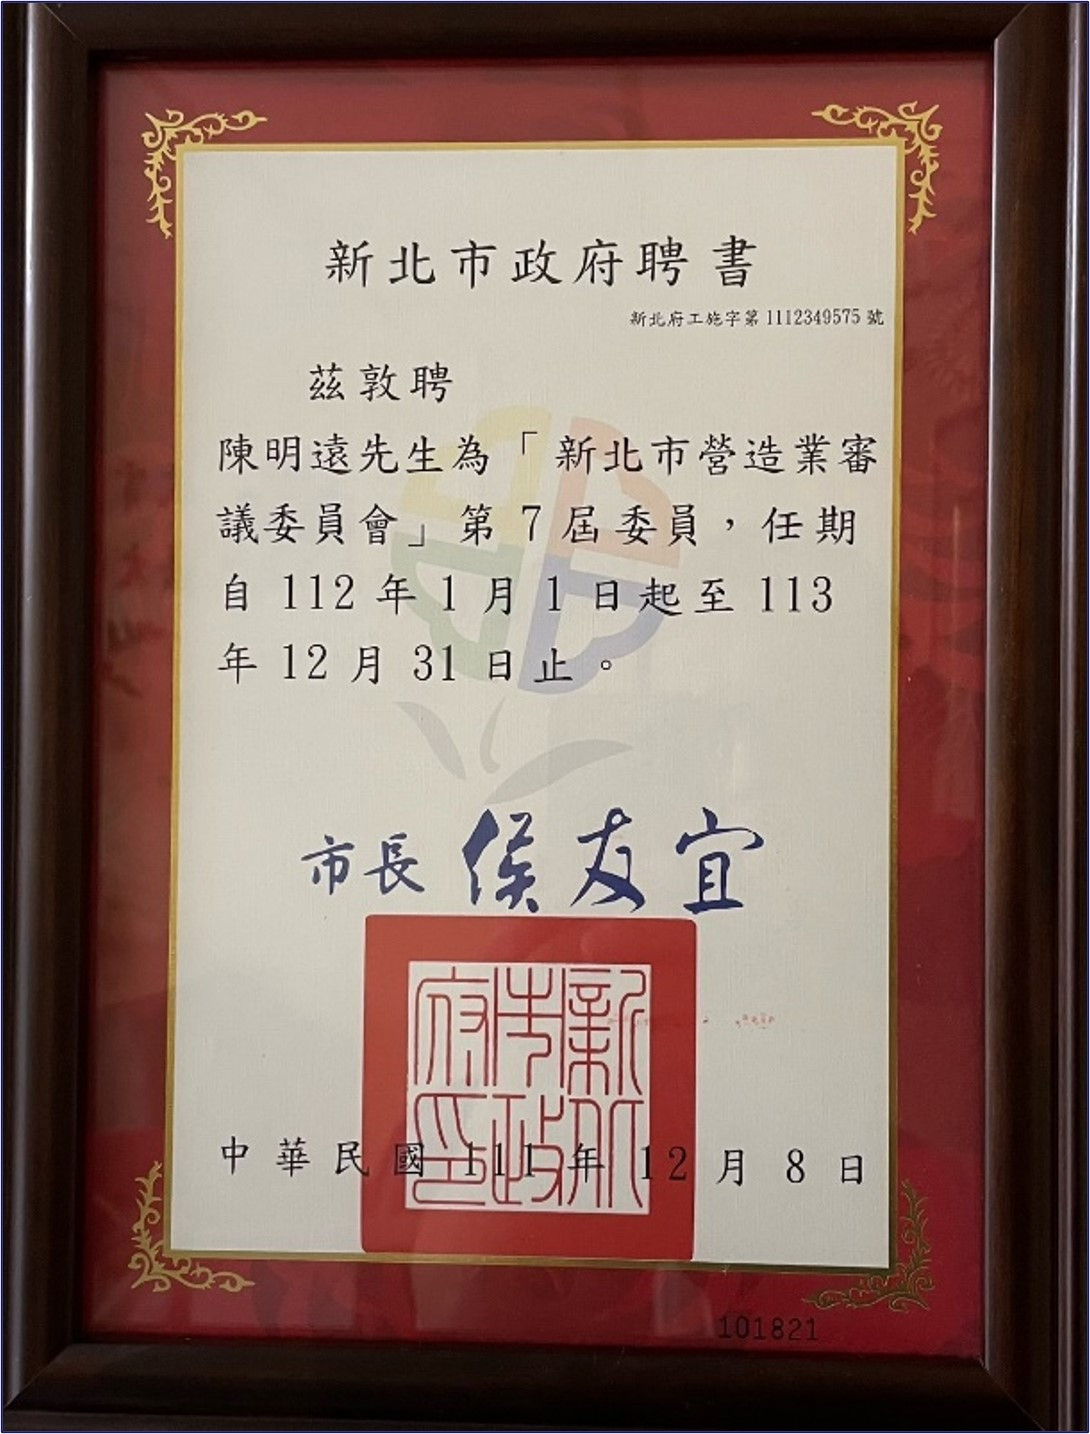 新北市政府聘書
新北府工施字第1112349575號
茲敦聘
陳明遠先生為「新北市營造業審
議委員會」第7屆委員，任期
自112年1月1日起至113
年12月31日止。
市長 侯友宜
新北市政府印
中華民國111年12月8日
101821